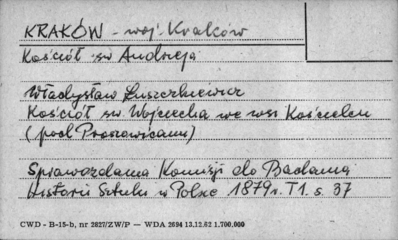 KRAKÓW - woj. Kraków
Kościół św Andrzeja
Władysław Łuszczkiewicz
Kościół św. Wojciecha we wsi Kościelcu
(pod Proszowicami)
Sprawozdania Komisji do Badania
Historii Sztuki w Polsce 1879 r. T1. s. 37
CWD - B-15-b, nr 2827/ZW/P — WDA 2694 13.12.62 1.700.000